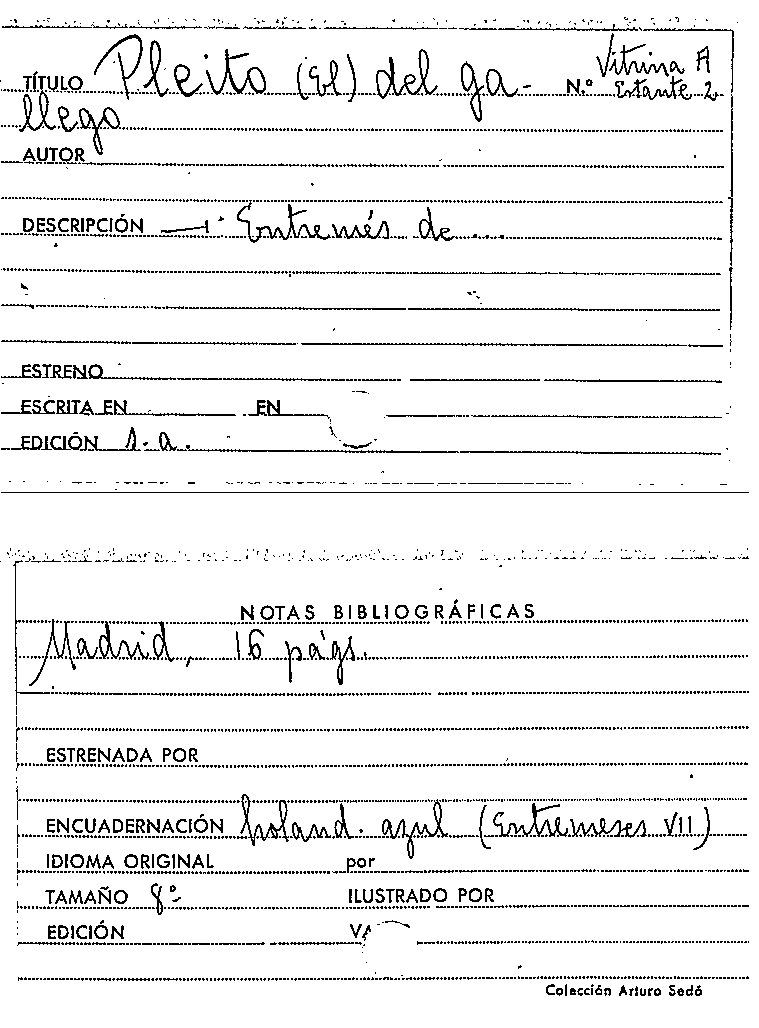 TÍTULO Pleito (El) del ga- N.º Vitrina A Estante 2
llego
AUTOR
DESCRIPCIÓN Entremés de ...
ESTRENO
ESCRITA EN EN
EDICIÓN s.a.
NOTAS BIBLIOGRÁFICAS
Madrid, 16 págs.
ESTRENADA POR
ENCUADERNACIÓN holand. azul (Entremeses VII)
IDIOMA ORIGINAL por
TAMAÑO 8º ILUSTRADO POR
EDICIÓN
Colección Arturo Sedó